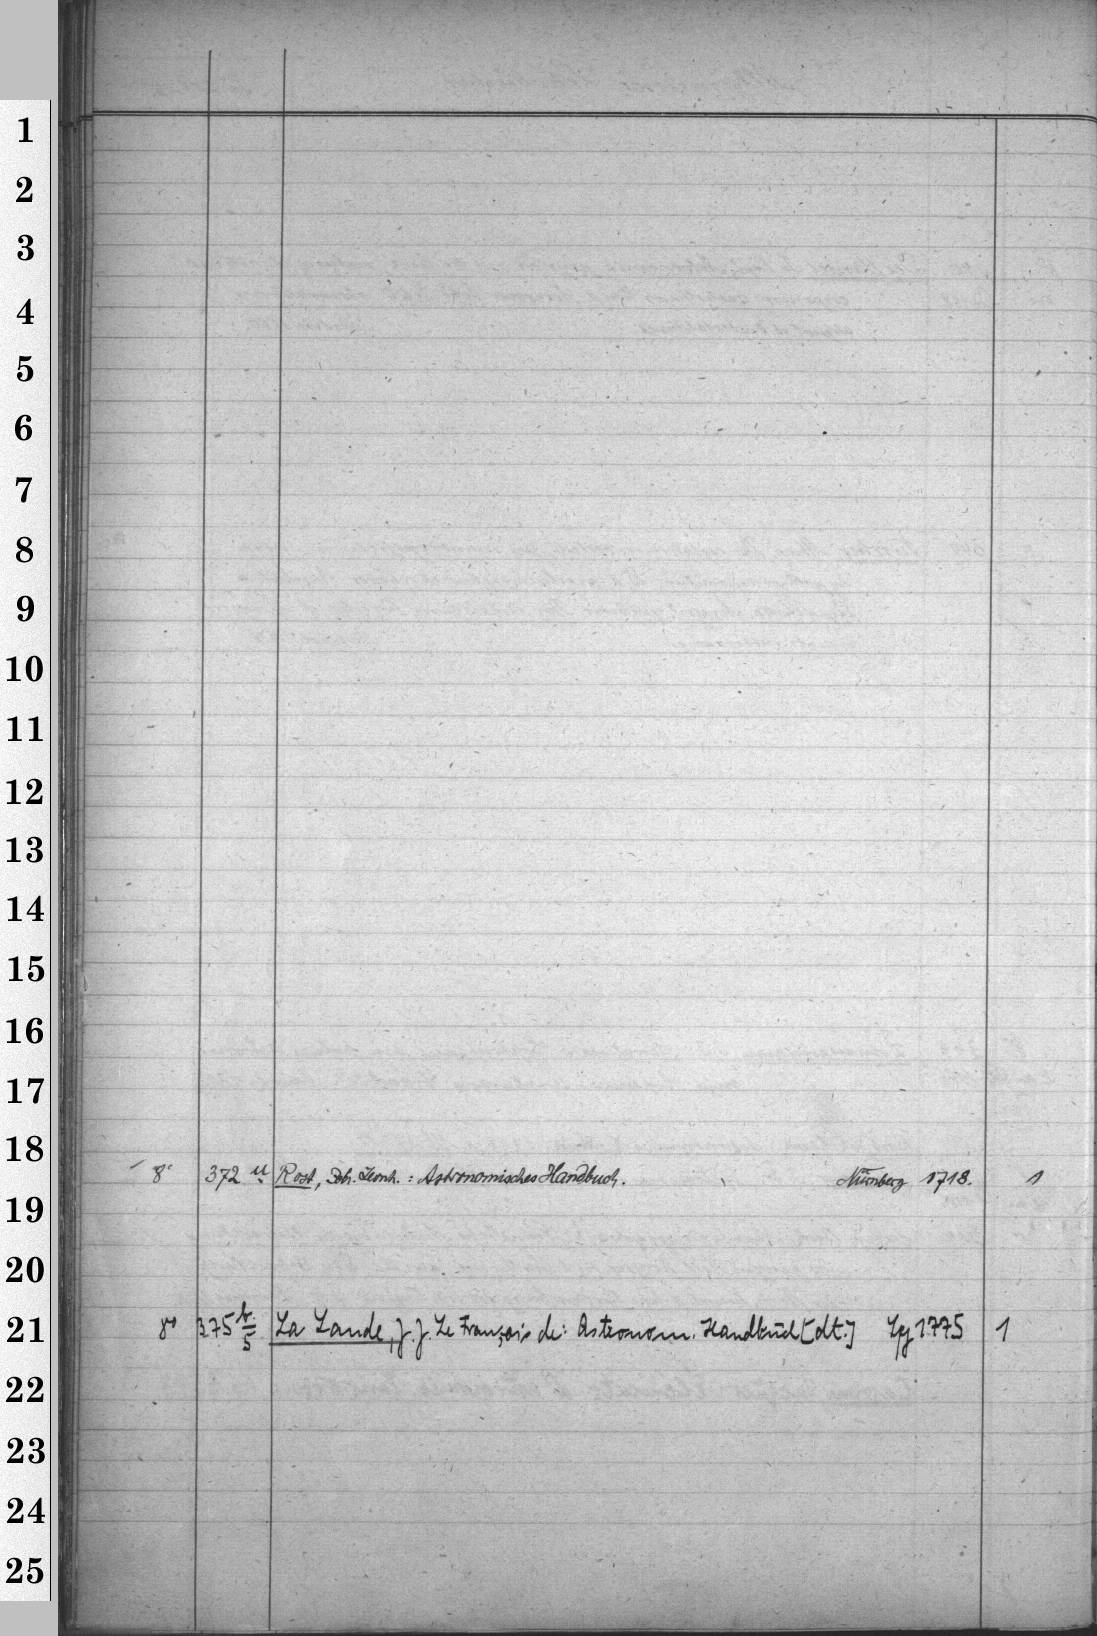 1
2
3
4
5
6
7
8
9
10
11
12
13
14
15
16
17
18
8° 372 u Rost, Joh. Leonh.: Astronomisches Handbuch. Nürnberg 1718. 1
19
20
21 8° 375 b/5 La Lande, J. J. Le Français de: Astronom. Handbuch [dt.] Lpg 1775 1
22
23
24
25